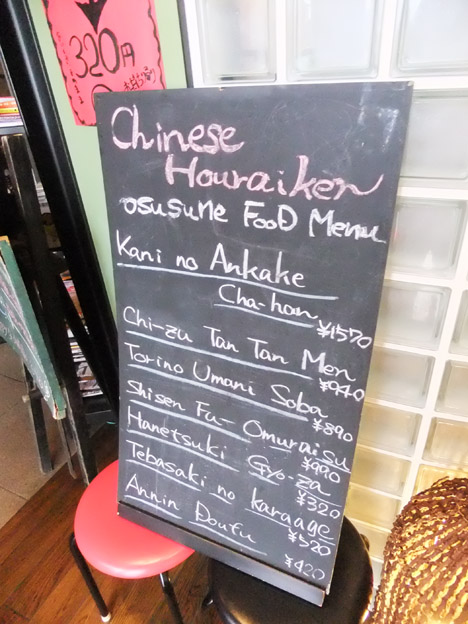 320円
Chinese
Houraiken
osusume FooD Menu
Kani no Ankake
Cha-han
¥1570
Chi-zu Tan Tan Men
¥940
Torino Umani Soba
¥890
Shisen Fu- Omuraisu
¥990
Hanetsuki Gyo-za
¥320
Tebasaki no karaage
¥520
Annin Doufu
¥420